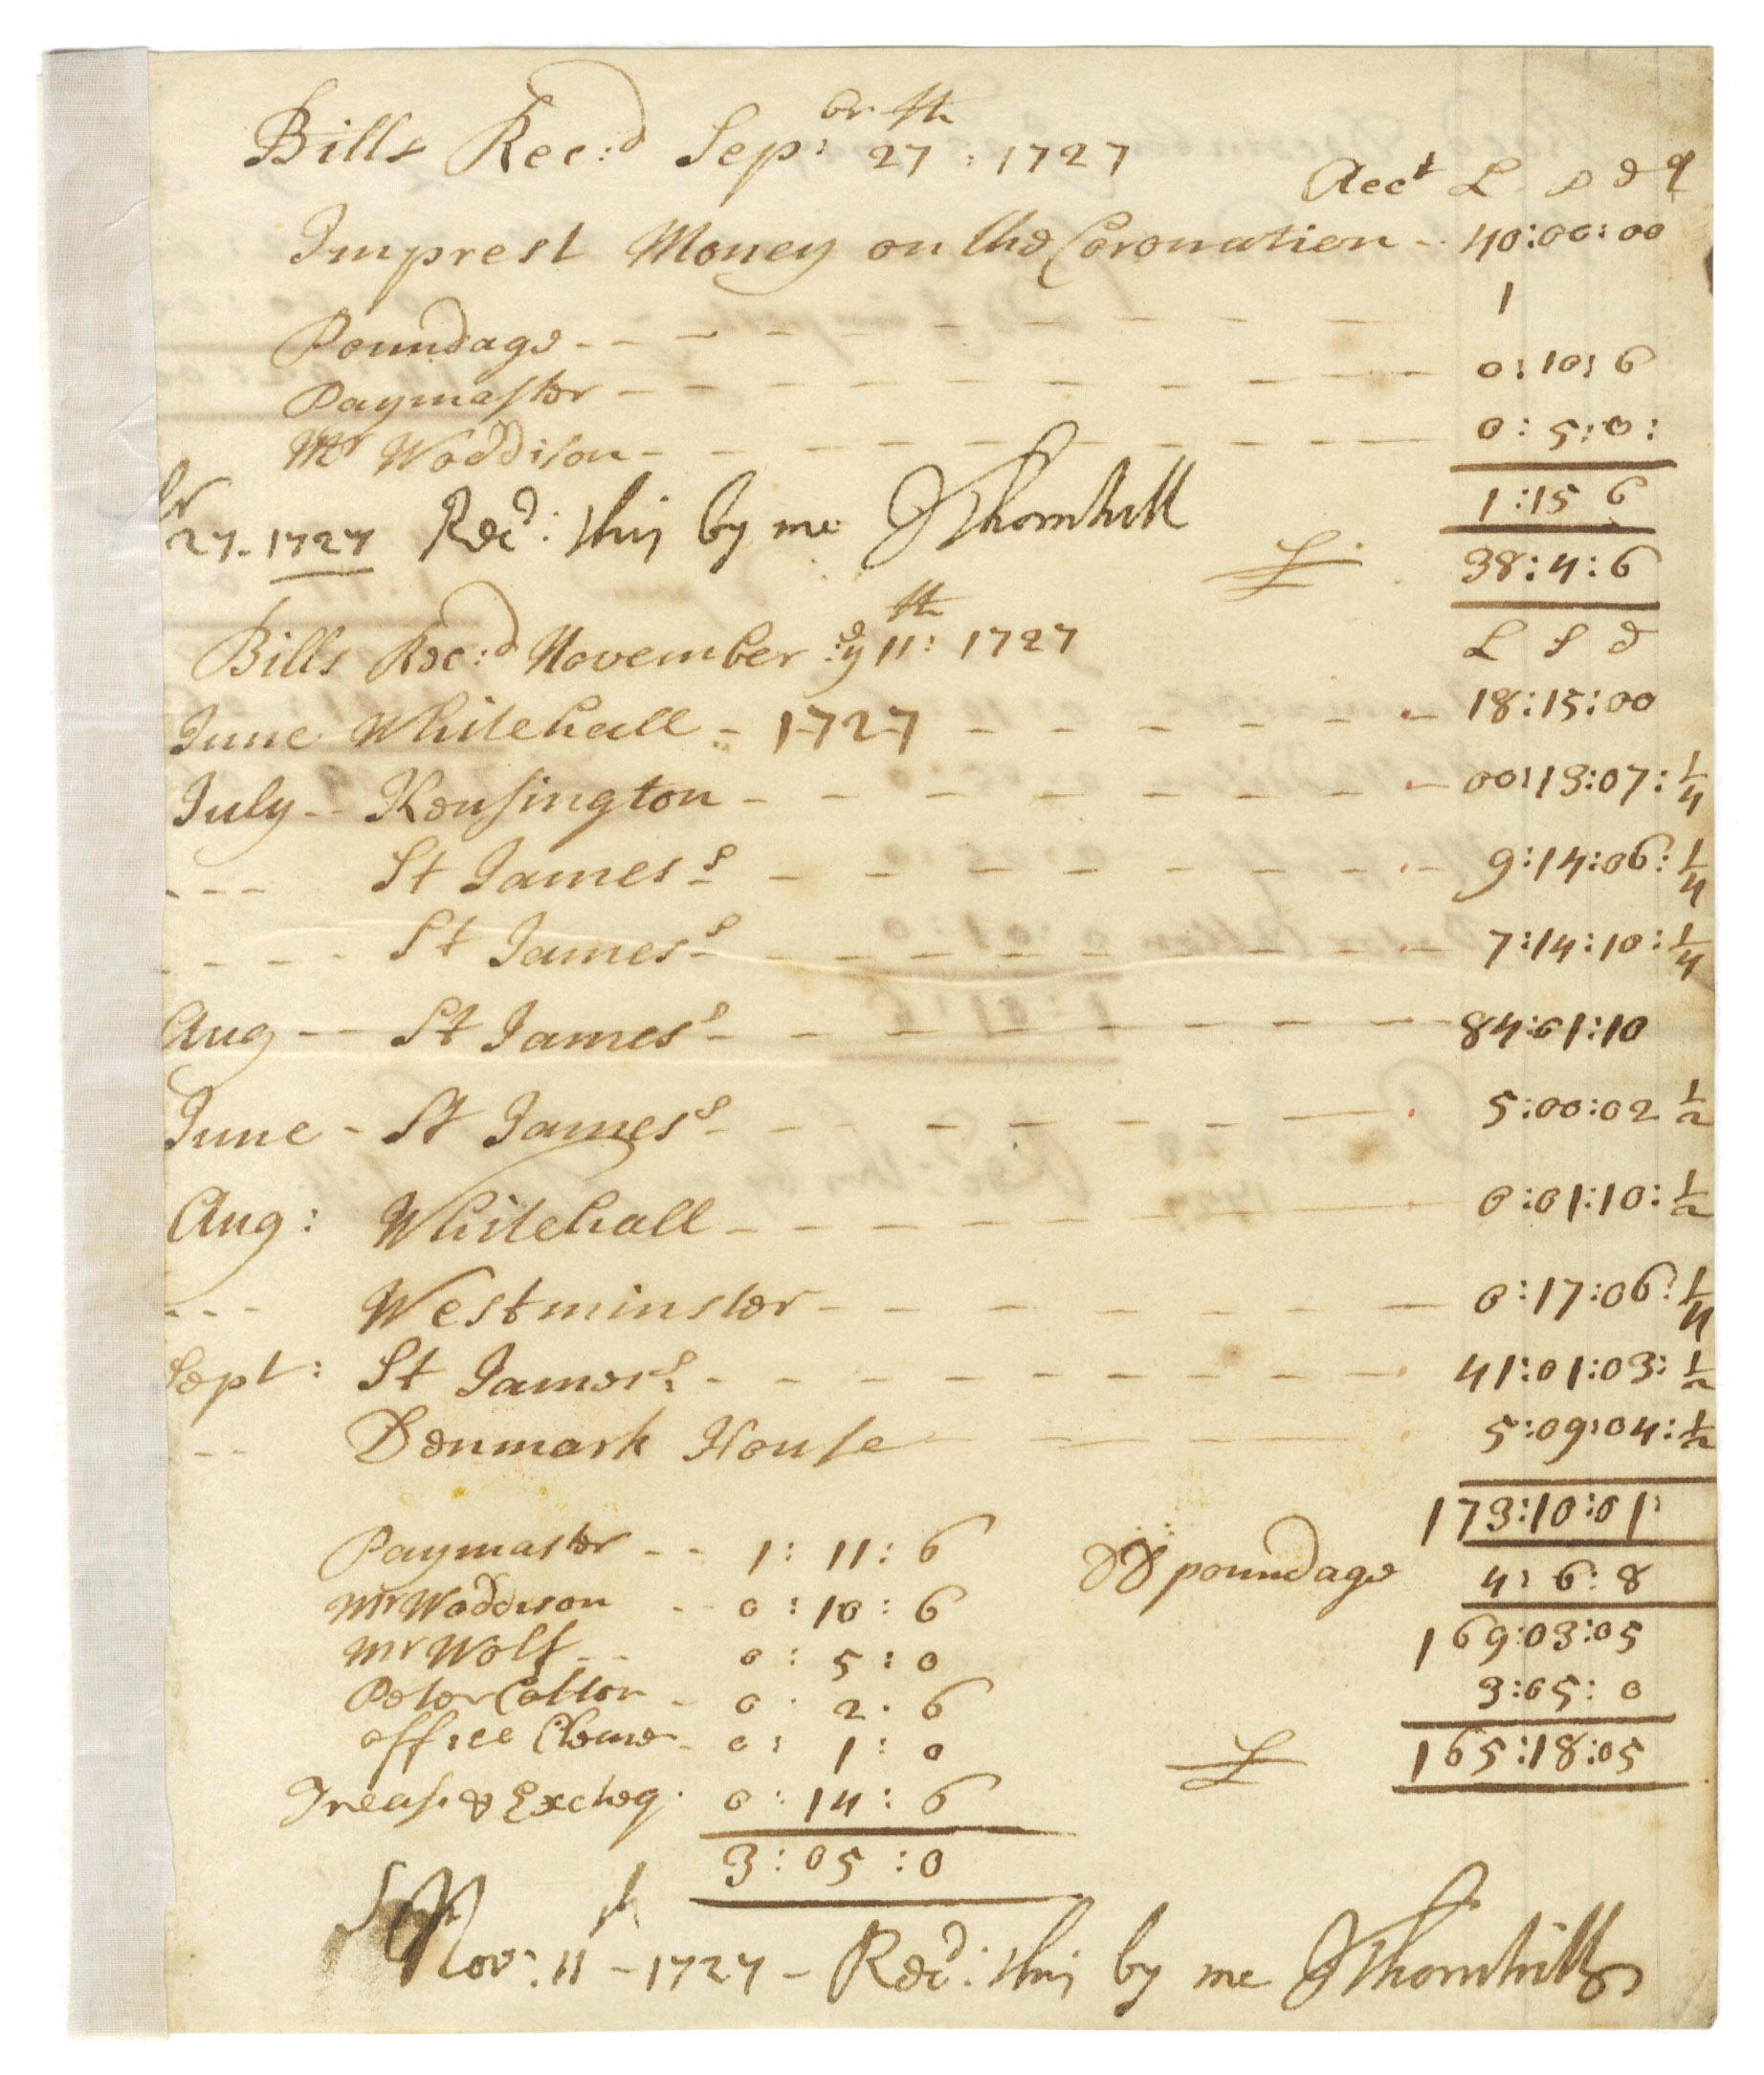 Bills Rec:d Sep:br 27th : 1727
Acct L s d q
Imprest Money on the Coronation - - 40:00:00
Poundage - - - - 1
Paymaster - - - - 0:10:6
Mr Waddison - - - - 0:5:0:
1:15 6
br 27. 1727 Recd: this by me JThornhill
£ 38:4:6
Bills Rec:d November :ye 11:th 1727
L s d
June Whitehall - 1727 - - - - 18:15:00
July - - Kensington - - - - 00:13:07:1/4
- - - St James:s - - - - 9:14:06:1/4
- - - - St James:s - - - - 7:14:10:1/4
Aug - - St James:s - - - - 84:01:10
June - St James:s - - - - 5:00:02 1/2
Aug: Whitehall - - - - 0:01:10:1/2
- - - Westminster - - - - 0:17:06:1/4
Sept: St James:s - - - - 41:01:03:1/2
- - Denmark House - - - - 5:09:04:1/2
173:10:01:
Paymaster - - 1:11:6
poundage 4:6:8
Mr Waddison - - 0:10:6
169:03:05
Mr Wolf - - 0:5:0
3:05:0
Peter Cotton - 0:2:6
office - 0:1:0
£ 165:18:05
Treas: & Excheq: 0:14:6
3:05:0
Nov: 11th - 1727 - Recd: this by me JThornhill